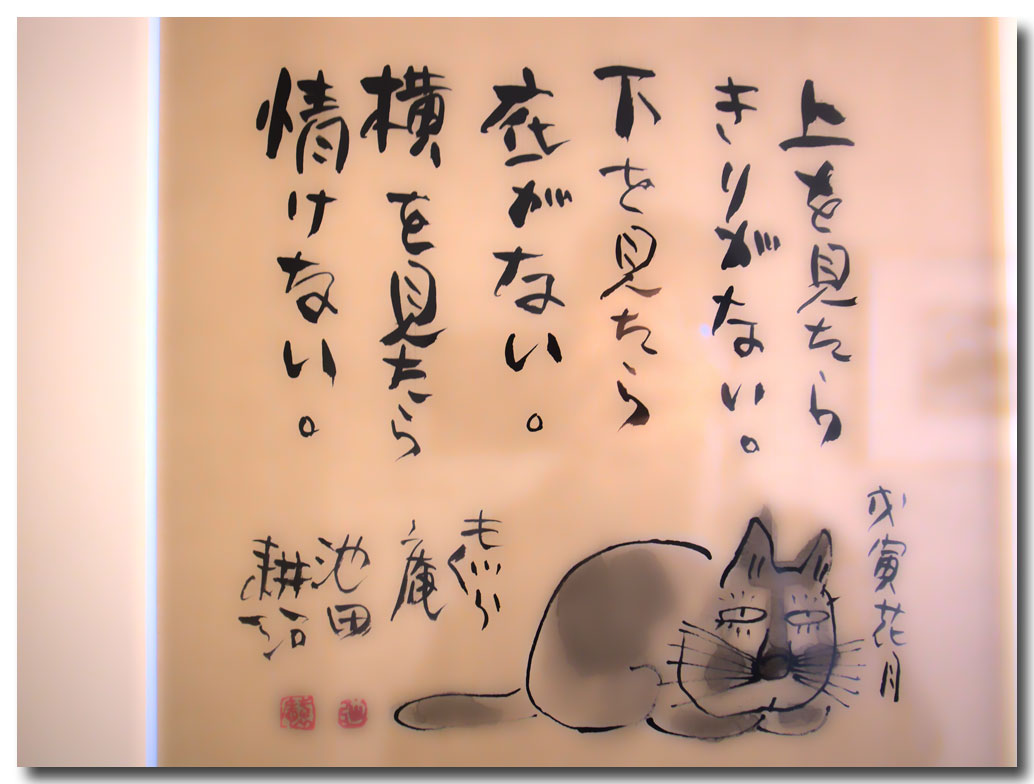 上を見たら
きりがない。
下を見たら
底がない。
横を見たら
情けない。
戊寅花月
もぐら
庵
池田
耕治